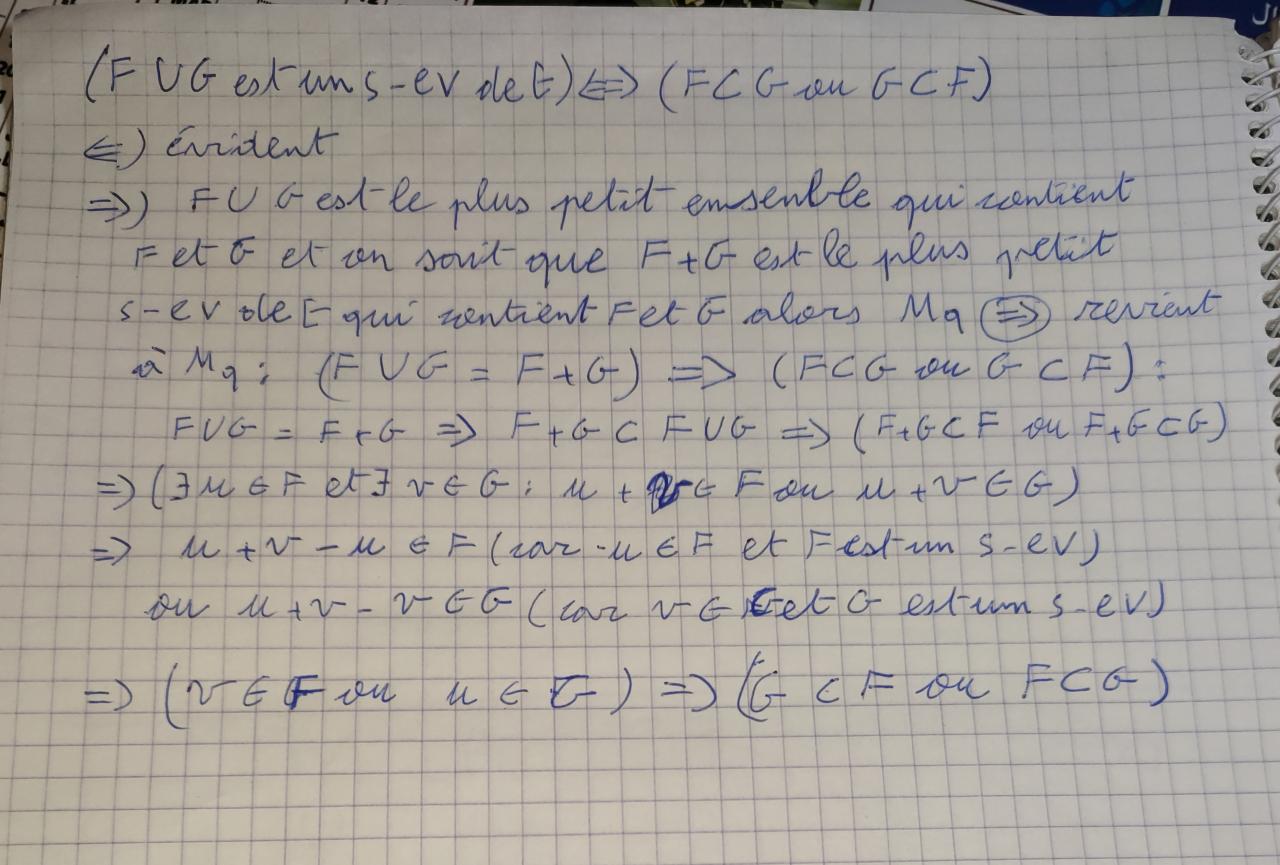 (F ∪ G est un s-ev de E) ⟺ (F ⊂ G ou G ⊂ F)
⇐) évident
⇒) F ∪ G est le plus petit ensenble qui contient
F et G et on sait que F+G est le plus petit
s-ev de E qui contient F et G alors Mq ⇒ revient
à Mq : (F ∪ G = F+G) ⇒ (F ⊂ G ou G ⊂ F) :
F ∪ G = F+G ⇒ F+G ⊂ F ∪ G ⇒ (F+G ⊂ F ou F+G ⊂ G)
⇒ (∃ u ∈ F et ∃ v ∈ G : u + v ∈ F ou u + v ∈ G)
⇒ u + v - u ∈ F (car -u ∈ F et F est un s-ev)
ou u + v - v ∈ G (car v ∈ G et G est un s-ev)
⇒ (v ∈ F ou u ∈ G) ⇒ (G ⊂ F ou F ⊂ G)